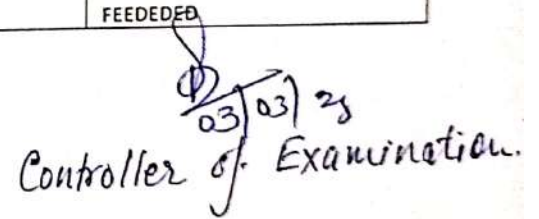 FEEDEDED
03/03/25
Controller of Examination.